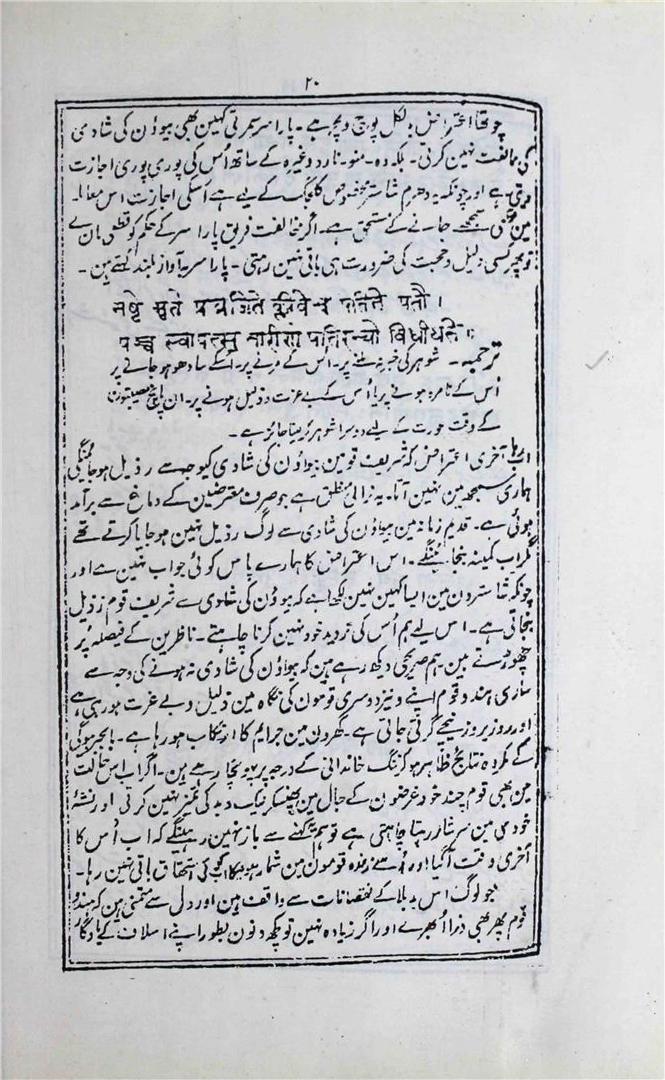 ۲۰
چوتھا اعتراض بالکل پوچ و لچر ہے۔ پاراسر سمرتی کہین بھی بیوؤن کی شادی
کی ممانعت نہین کرتی۔ بلکہ وہ۔ منو۔ نارد وغیرہ کے ساتھ اُس کی پوری پوری اجازت
دیتی ہے اور چونکہ یہ دھرم شاستر مخصوص کلجگ کے لیے ہے اسکی اجازت اس معاملہ
مین سمجھے جانے کے مستحق ہے۔ اگر مخالفت فریق پاراسر کے حکم کو قطعی مان لے
تو پھر کسی دلیل و حجت کی ضرورت ہی باقی نہین رہتی۔ پاراسر بہ آواز بلند کہتے ہین۔
नष्टे मृते प्रव्रजिते क्लीवे च पतिते पतौ।
पञ्च स्वापत्सु नारीणां पतिरन्यो विधीयते॥
ترجمہ۔ شوہر کی خبر نہ ملنے پر۔ اُس کے مرنے پر۔ اسکے سادھو ہو جانے پر
اُس کے نامرد ہونے پر یا اُس کے بے عزت و ذلیل ہونے پر۔ ان پانچ مصیبتون
کے وقت عورت کے لیے دوسرا شوہر کر لینا جائز ہے۔
اب رہا آخری اعتراض کہ شریف قومین بیواؤن کی شادی کیوجہ سے رذیل ہو جائینگی
ہماری سمجھ مین نہین آتا۔ یہ نرالی منطق ہے جو صرف معترضین کے دماغ سے برآمد
ہوئی ہے۔ قدیم زمانہ مین بیواؤن کی شادی سے لوگ رذیل نہین ہو جایا کرتے تھے
مگر اب کمینہ بنجائینگے۔ اس اعتراض کا ہمارے پاس کوئی جواب نہین ہے اور
چونکہ شاسترون مین ایسا کہین نہین لکھا ہے کہ بیوؤن کی شادی سے شریف قوم رذیل
بنجاتی ہے۔ اس لیے ہم اُس کی تردید خود نہین کرنا چاہتے۔ ناظرین کے فیصلہ پر
چھوڑتے ہین۔ ہم صریحی دیکھ رہے ہین کہ بیواؤن کی شادی نہ ہونے کی وجہ سے
ساری ہندو قوم اپنے و نیز دوسری قومون کی نگاہ مین ذلیل و بے عزت ہو رہی ہے
اور روز بروز نیچے گرتی جاتی ہے۔ گھرون مین جرایم کا ارتکاب ہو رہا ہے۔ بالجبر بیوگی
کے مکروہ نتائج ظاہر ہو کر ننگ خاندانی کے درجہ پر پہونچا رہے ہین۔ اگر اب اس حالت
مین بھی قوم چند خود غرضون کے جال مین پھنسکر نیک و بد کی تمیز نہین کرتی اور نشۂ
خودی مین سرشار رہنا چاہتی ہے تو ہم یہ کہنے سے باز نہین رہینگے کہ اب اُس کا
آخری وقت آ گیا اور اُسے زندہ قومون مین شمار ہونیکا کوئی استحقاق باقی نہین رہا۔
جو لوگ اس بلا کے نقصانات سے واقف ہین اور دل سے متمنی ہین کہ ہندو
قوم پھر بھی ذرا اُبھرے اور اگر زیادہ نہین تو کچھ دنون بطور اپنے اسلاف کے یادگار